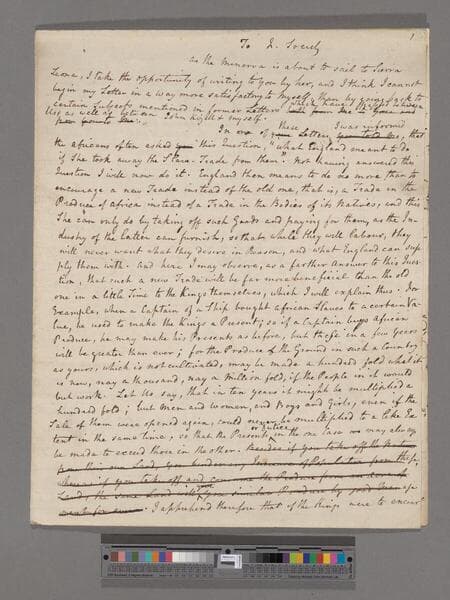 1
To I. Society
as the Minerva is about to sail to Sierra
Leone, I take the opportunity of writing to You by her, and I think I cannot
begin my Letter in a way more satisfactory to myself than by going back to
certain Subjects mentioned in former Letters which have passed between
Us as well as between John Wright & myself.
In one of these Letters I was informed, that
the africans often asked this Question, "what England meant to do
if She took away the Slave-Trade from them". Not having answered this
Question I will now do it. England then means to do no more than to
encourage a new Trade instead of the old one, that is, a Trade in the
Produce of africa instead of a Trade in the Bodies of its Natives, and this
She can only do by taking off such Goods and paying for them, as the In-
dustry of the latter can furnish, so that while they will labour, they
will never want what they desire in Reason, and what England can sup-
ply them with. And here I may observe, as a farther answer to this Ques-
tion, that such a new Trade will be far more beneficial than the old
one in a little Time to the Kings themselves, which I will explain thus. For
Example, when a Captain of a Ship bought african Slaves to a certain Va-
lue, he used to make the Kings a Present; so if a Captain buys african
Produce, he may make his Presents as before, but these in a few Years
will be greater than ever; for the Produce of the Ground in such a Country
as yours, which is not cultivated, may be made a hundred fold what it
is now, nay a thousand, nay a Million fold, if the People in it would
but work. Let Us say, that in ten years it might be multiplied a
hundred fold; but Men and Women, and Boys and Girls, even if the
Sale of them were opened again, could never be multiplied to a like Ex-
tent in the same time, so that the Presents in the one Case may always
be made to exceed those in the other. Besides if you take off the
. I apprehend therefore that if the Kings were to encour